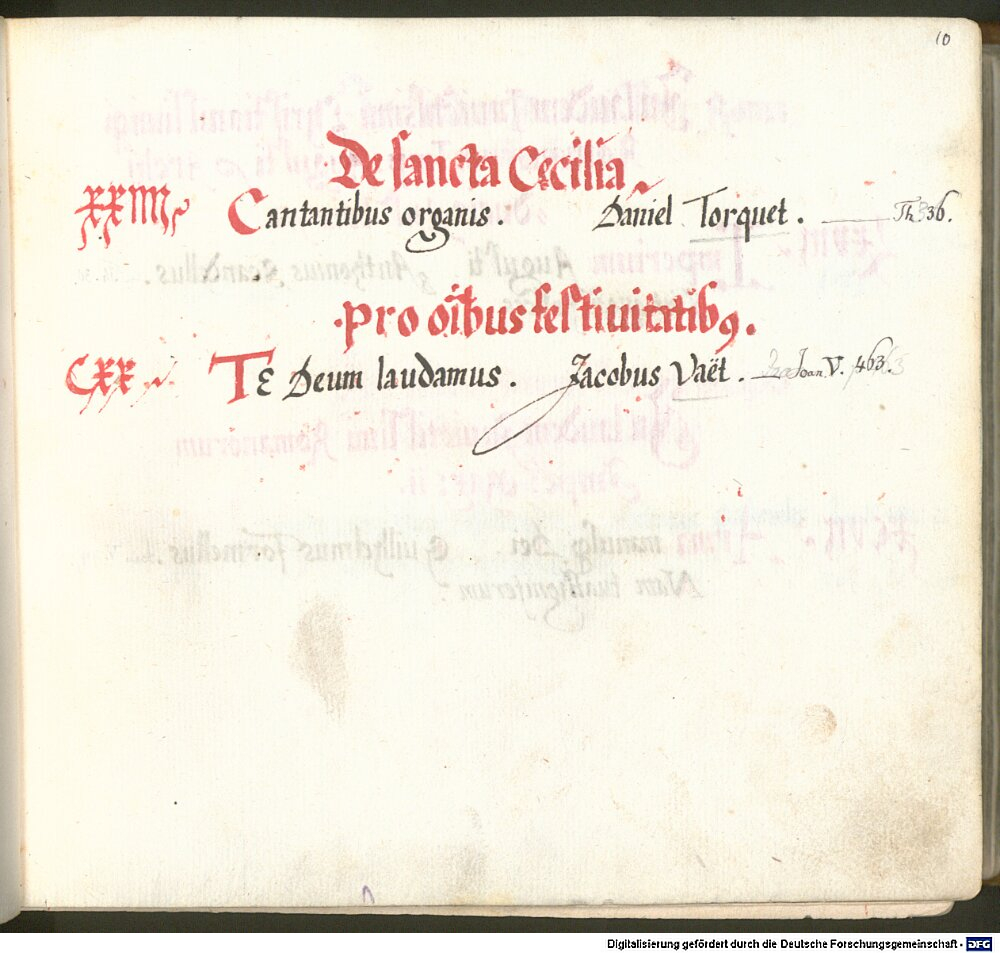 10
De sancta Cecilia
XXIIII Cantantibus organis. Daniel Torquet. Th. 36.
pro oibus festiuitatib9.
CXX TE Deum laudamus. Jacobus Vaët. Joan. V. 463.
Digitalisierung gefördert durch die Deutsche Forschungsgemeinschaft - DFG